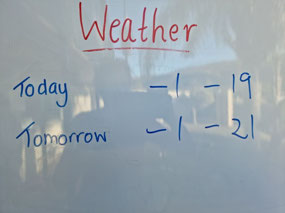 Weather
Today -1 -19
Tomorrow -1 -21